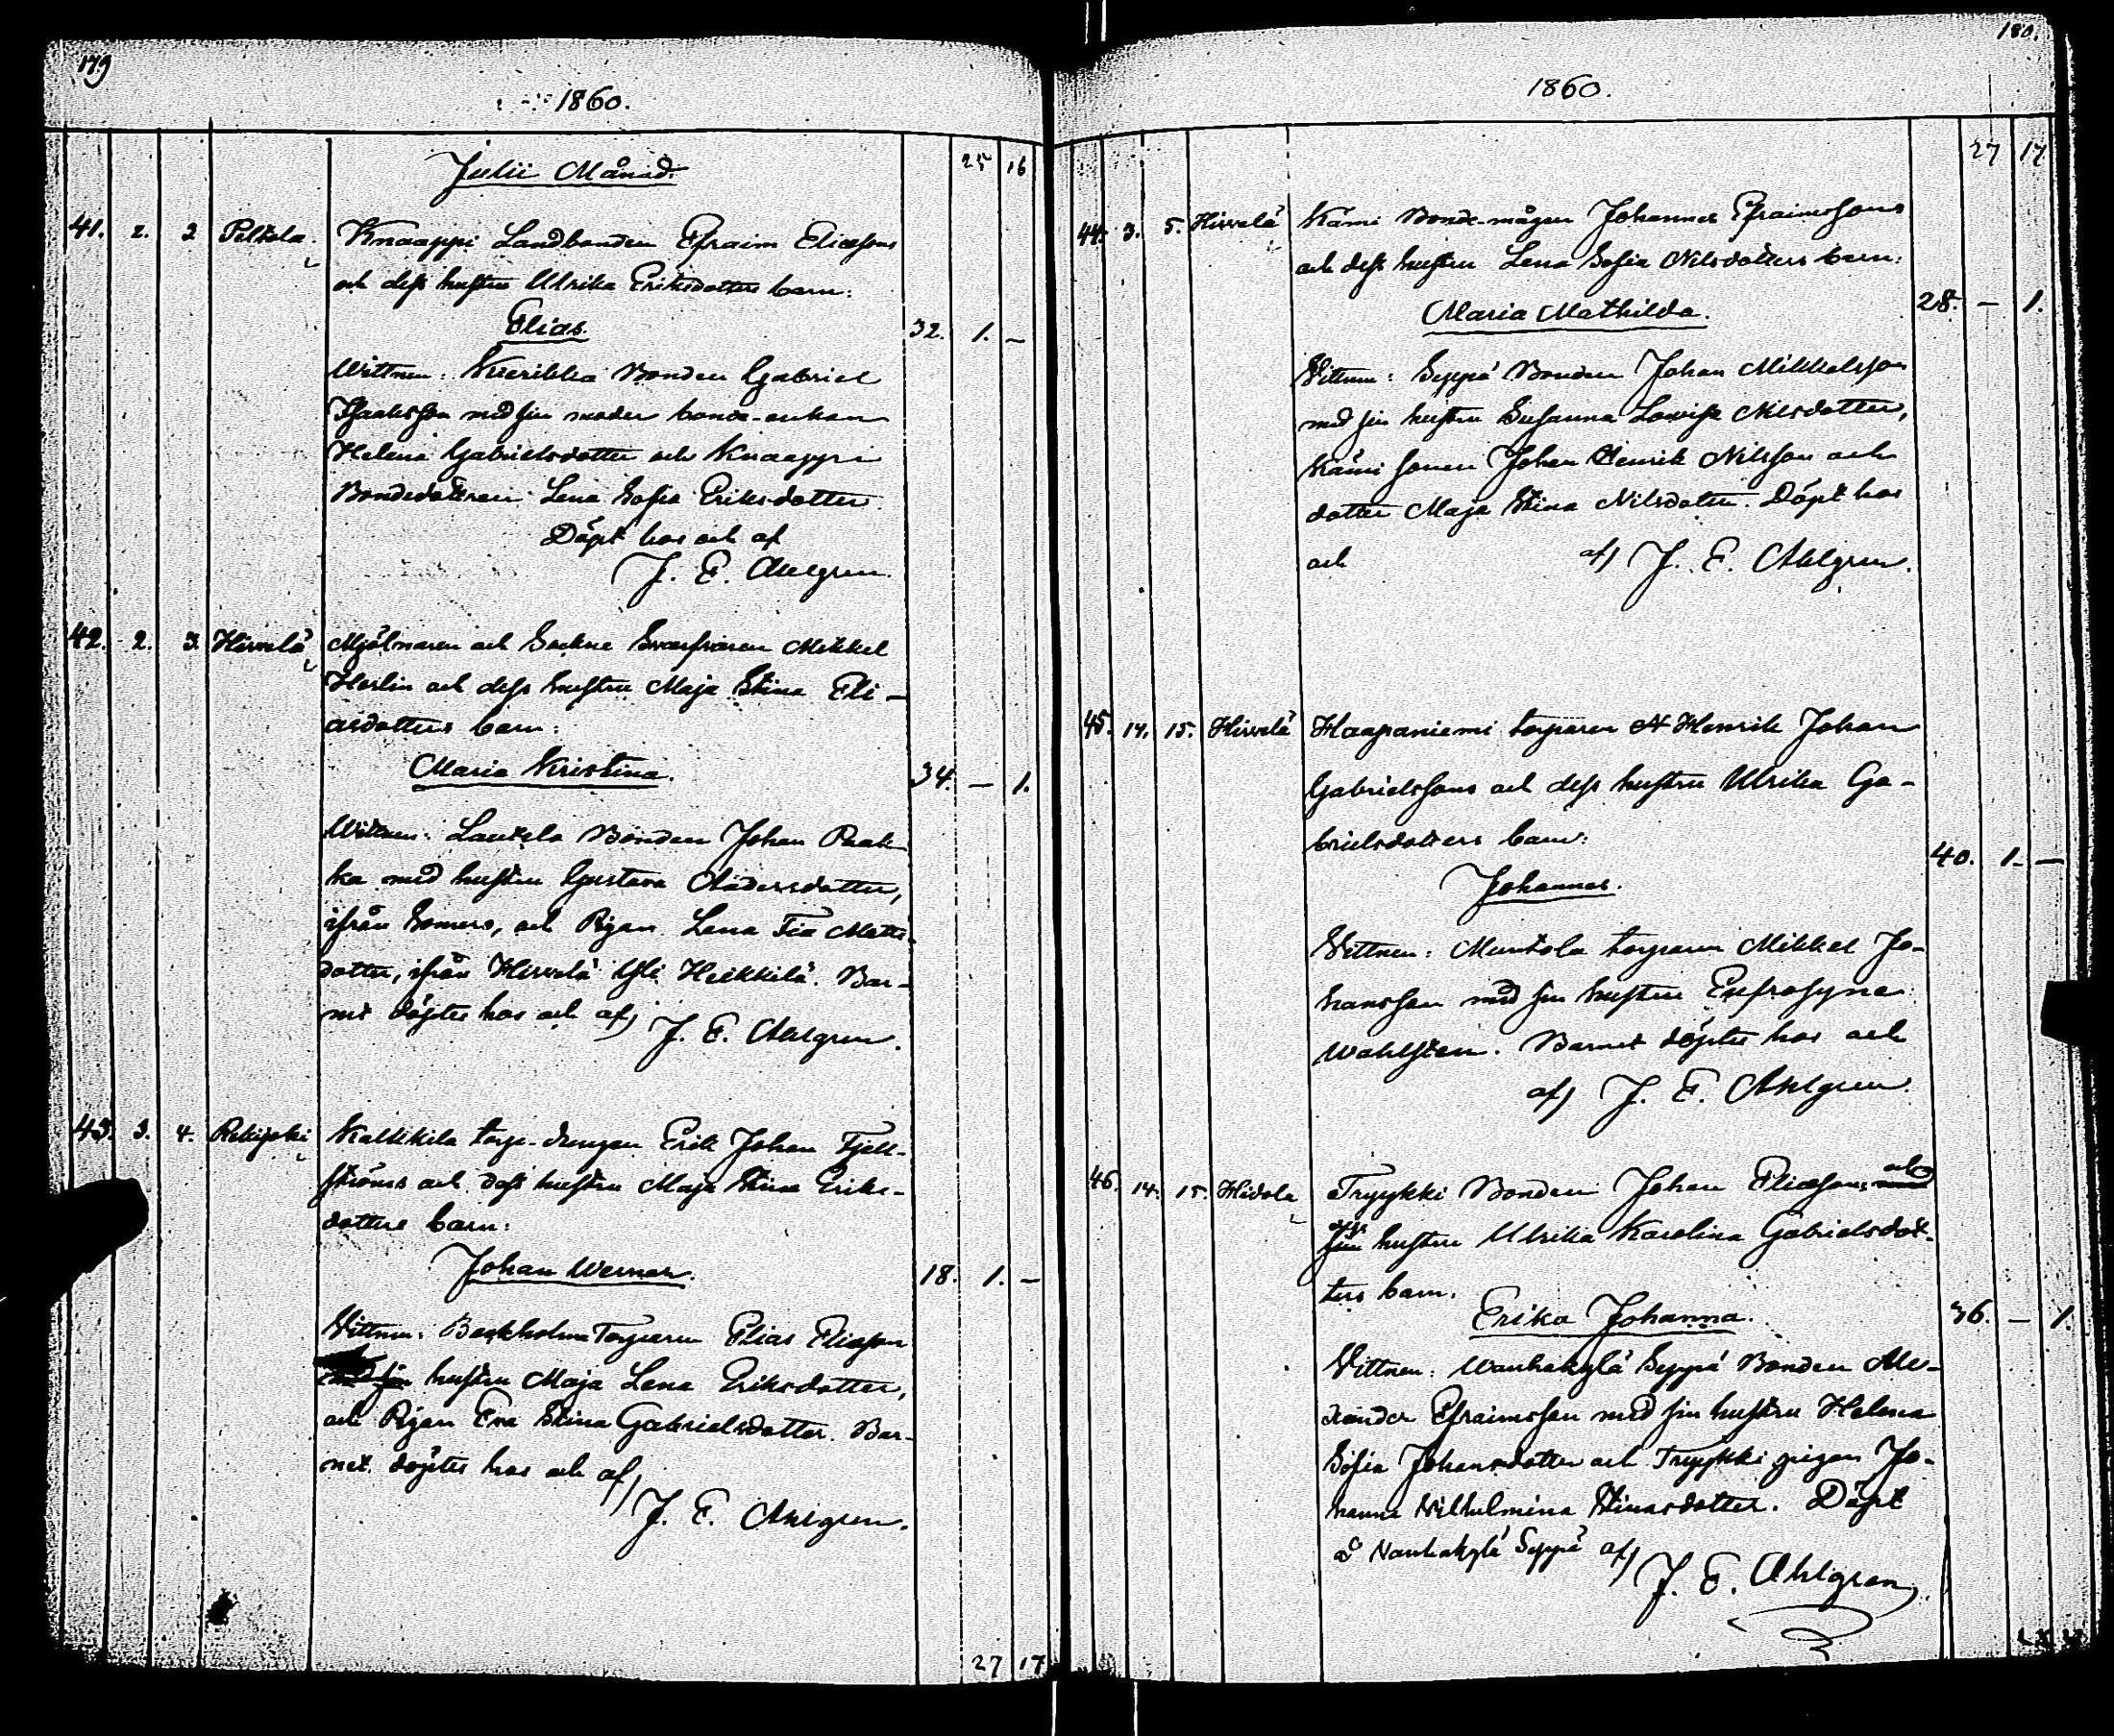 179
1860.
Julii Månad.
25 16
41. 2. 3 Peltola. Knaappi Landbonden Efraim Eliæsons
och dess hustru Ulrika Eriksdotters barn:
Elias. 32. 1. –
Wittnen: Kuerikka Bonden Gabriel
Isaaksson med sin moder bonde-enkan
Helena Gabrielsdotter och Knaappi
Bondedottren Lena Sofia Eriksdotter.
Döpt hos och af
J. E. Ahlgren.
42. 2. 3. Hirvelä Mjölnaren och Sockne Svarfvaren Mikkel
Horlin och dess hustru Maja Stina Eli-
asdotters barn:
Maria Kristina. 34. – 1.
Wittnen: Lautela Bonden Johan Paak-
ka med hustru Gustava Andersdotter,
ifrån Somero, och Pigan Lena Fia Matts-
dotter, ifrån Hirvelä Yli Heikkilä. Bar-
net döptes hos och af J. E. Ahlgren.
43. 3. 4. Rekijoki Kalkkila torp-drengen Erik Johan Fjell-
ströms och dess hustru Maja Stina Eriks-
dotters barn:
Johan Werner. 18. 1. –
Vittnen: Torparen Elias Eliæson
med sin hustru Maja Lena Eriksdotter,
och Pigan Eva Stina Gabrielsdotter. Bar-
net döptes hos och af
J. E. Ahlgren.
27 17
180.
1860.
27 17
44. 3. 5. Hirvelä Kämi Bonde-mågen Johannes Efraimssons
och dess hustru Lena Sofia Nilsdotters barn:
Maria Mathilda. 28. – 1.
Vittnen: Seppä Bonden Johan Mikkelsson
med sin hustru Susanna Lovisa Nilsdotter,
Kämi sonen Johan Henrik Nilsson och
dotter Maja Stina Nilsdotter. Döpt hos
och af J. E. Ahlgren.
45. 14. 15. Hirvelä Haapaniemi torparen Henrik Johan
Gabrielssons och dess hustru Ulrika Ga-
brielsdotters barn:
Johannes. 40. 1. –
Vittnen: Muntola torparen Mikkel Jo-
hansson med sin hustru Eufrosyne
Wahlsten. Barnet döptes hos och
af J. E. Ahlgren.
46. 14. 15. Hidola Tryykki Bonden Johan Eliæsons med och
sin dess hustru Ulrika Karolina Gabrielsdot-
ters barn.
Erika Johanna. 36. – 1.
Vittnen: Wanhakylä Seppä Bonden Ale-
xander Efraimsson med sin hustru Helena
Sofia Johansdotter och Tryykki pigan Jo-
hanna Wilhelmina Stinasdotter. Döpt
å Vanhakylä Seppä af
J. E. Ahlgren